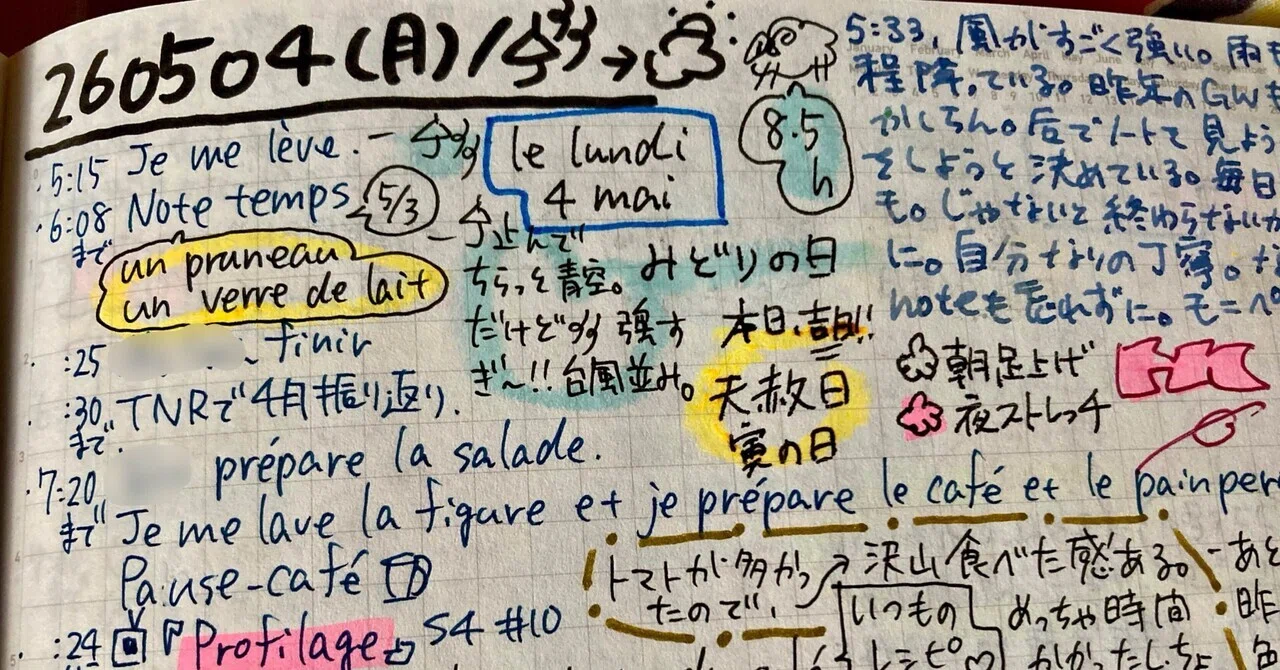 260504(月)/
5:15 Je me lève.
6:08 Note temps 5/3
まで
un pruneau
un verre de lait
:25 ~ finir
:30 TNRで4月振り返り.
まで.
7:20 prépare la salade.
まで Je me lave la figure et je prépare le café et le pain per
Pause-café
:24 『Profilage』 S4 #10
le lundi
4 mai
8.5
h
止んで
ちらっと青空。
だけど 強す
ぎ〜!!台風並み。
みどりの日
本日、吉日!!
天赦日
寅の日
5:33, 風がすごく強い。雨も
程降っている。昨年のGWも
かしらん。后でノートで見よう
をしようと決めている。毎日
も。じゃないと終わらないか
に。自分なりの丁寧。な
noteも忘れずに。モーペ
朝足上げ
夜ストレッチ
トマトが多かっ
たので、
沢山食べた感ある。
いつもの
レシピ♡
めっちゃ時間
かかったしちょ
-あと
昨